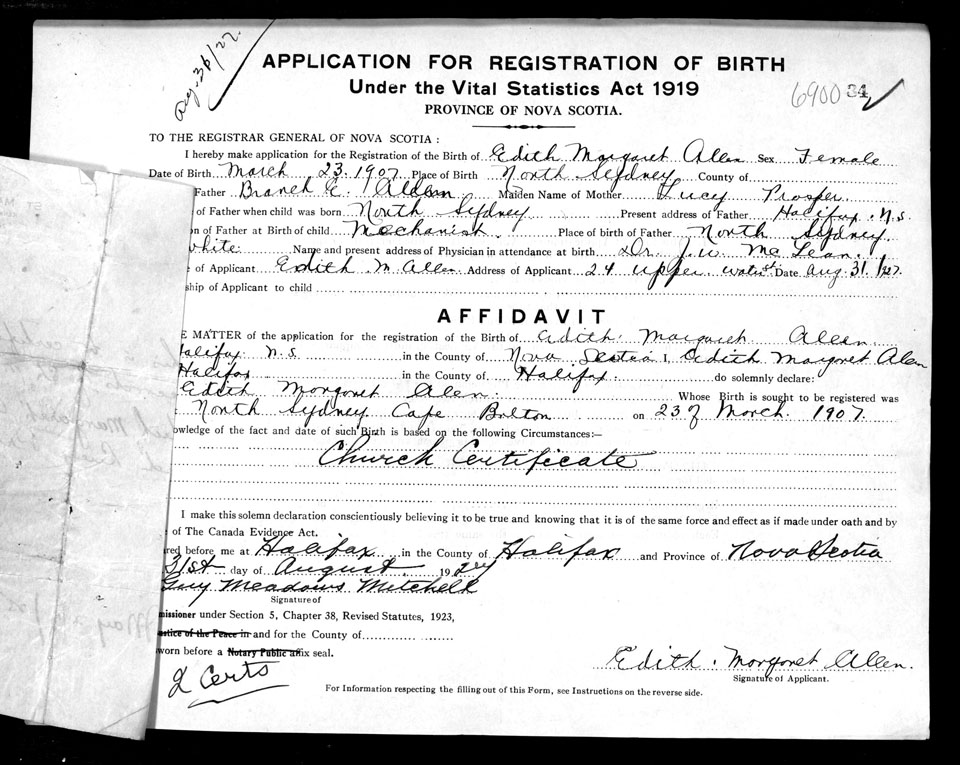 Aug. 31/27.
APPLICATION FOR REGISTRATION OF BIRTH
Under the Vital Statistics Act 1919
6900 84
PROVINCE OF NOVA SCOTIA.
TO THE REGISTRAR GENERAL OF NOVA SCOTIA :
I hereby make application for the Registration of the Birth of Edith Margaret Allen Sex Female
Date of Birth March 23. 1907 Place of Birth North Sydney County of
Father Maiden Name of Mother Lucy Prosper.
of Father when child was born North Sydney Present address of Father Halifax. N.S.
on of Father at Birth of child Mechanist. Place of birth of Father North Sydney.
white. Name and present address of Physician in attendance at birth Dr. J. W. Mc Lean.
e of Applicant Edith M. Allen Address of Applicant 24 upper water st. Date Aug. 31. 1927.
ship of Applicant to child
AFFIDAVIT
E MATTER of the application for the registration of the Birth of Edith. Margaret Allen.
Halifax N.S. in the County of Nova Scotia I, Edith Margaret Alen
Halifax in the County of Halifax. do solemnly declare:
Edith Morgoret Alen. Whose Birth is sought to be registered was
North Sydney Cape Bolton on 23 of March. 1907.
owledge of the fact and date of such Birth is based on the following Circumstances:—
Church Certificate
I make this solemn declaration conscientiously believing it to be true and knowing that it is of the same force and effect as if made under oath and by
of The Canada Evidence Act.
red before me at Halifax in the County of Halifax and Province of Nova Scotia
31st day of August. 1927
Guy Meadows Mitchell
Signature of
missioner under Section 5, Chapter 38, Revised Statutes, 1923,
stice of the Peace in and for the County of
worn before a Notary Public affix seal.
2 Certs
Edith. Morgoret Allen.
Signature of Applicant.
For Information respecting the filling out of this Form, see Instructions on the reverse side.